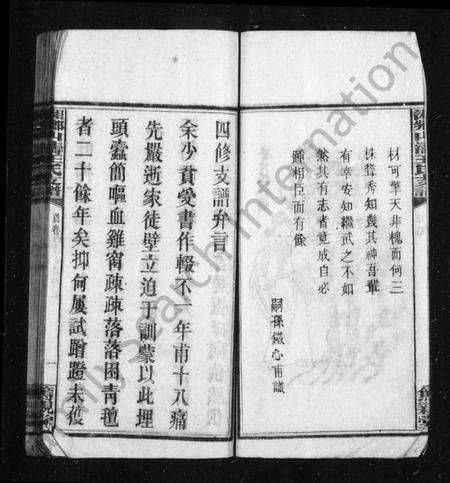 材可擎天非槐而何三
株聳秀知幾其神吾輩
有幸安知繩武之不如
然其有志者竟成自必
踵相臣而有餘
嗣孫鐵心甫識
四修支譜弁言
余少貧受書作輟不一年甫十八痛
先嚴逝家徒壁立迫于訓蒙以此埋
頭蠹簡嘔血雞窗疎疎落落困靑氊
者二十餘年矣抑何屢試蹭蹬未獲
首卷
一
FamilySearch International